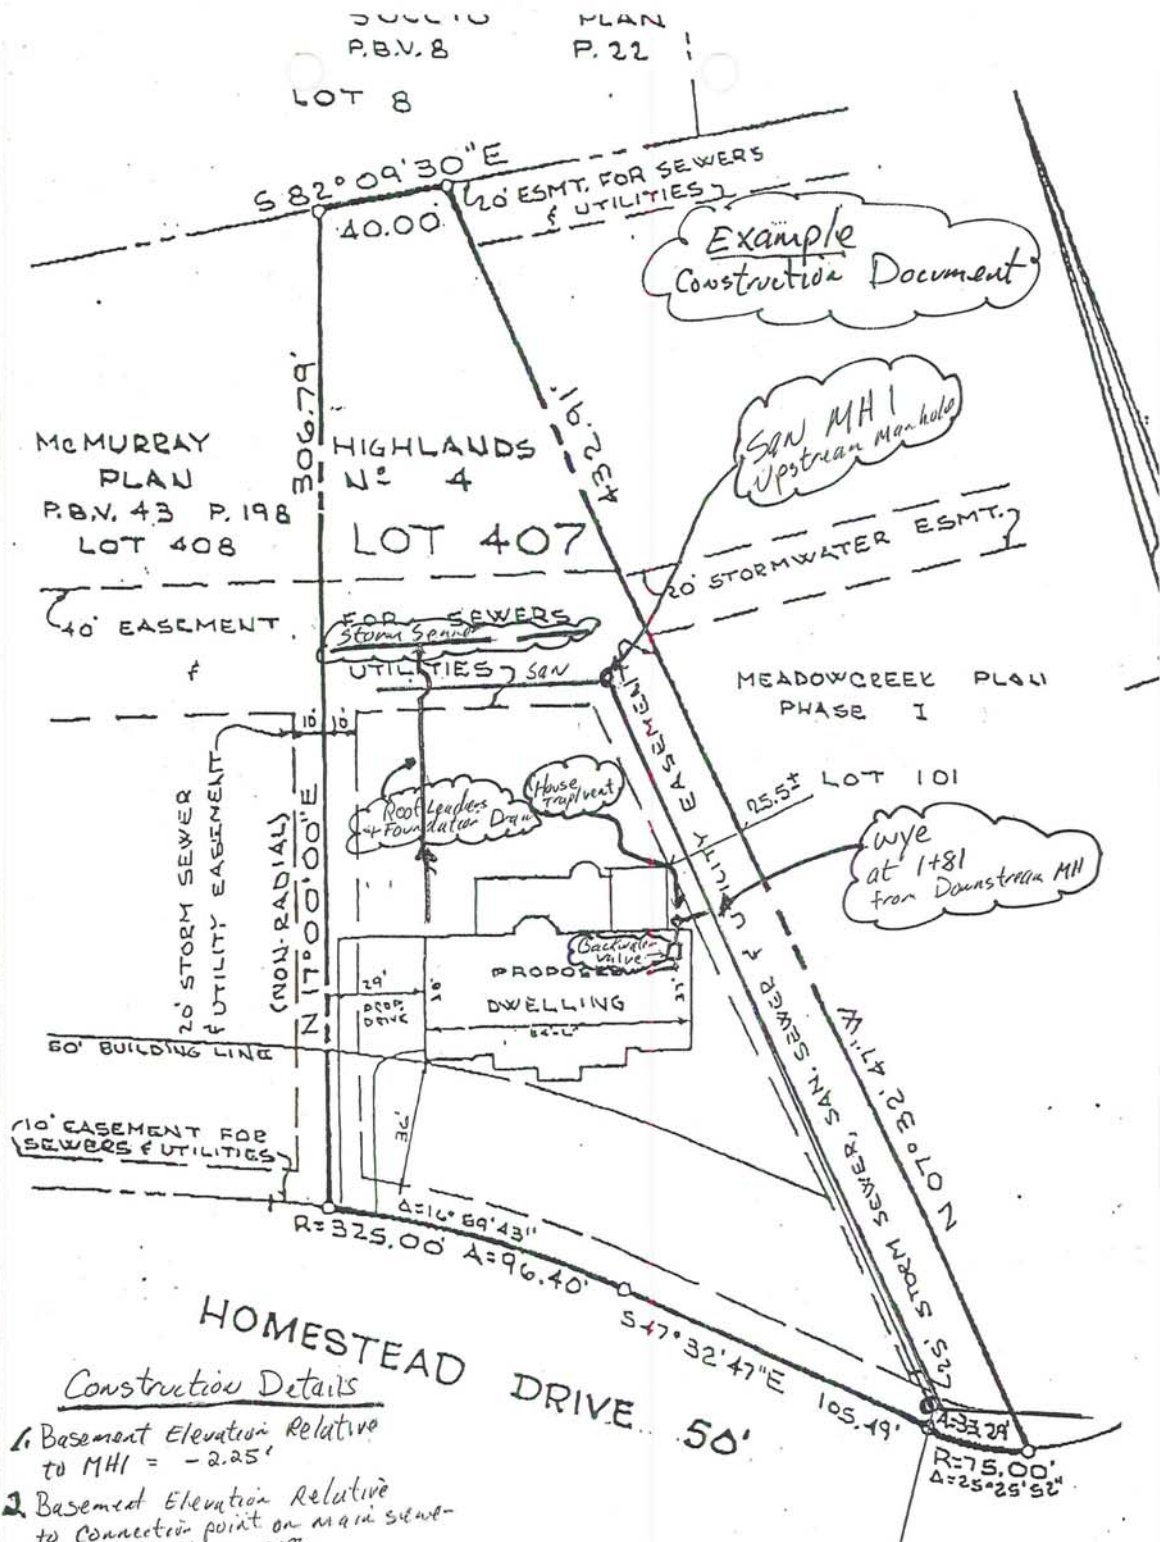 PLAN
P.B.V. 8 P. 22
LOT 8
S 82° 09' 30" E
40.00'
20' ESMT. FOR SEWERS
& UTILITIES
Example
Construction Document
306.79'
432.91'
San MH 1
Upstream Manhole
McMURRAY
PLAN
P.B.V. 43 P. 198
LOT 408
HIGHLANDS
Nº 4
LOT 407
20' STORMWATER ESMT.
40' EASEMENT
&
FOR SEWERS
Storm Sewer
UTILITIES
SAN
MEADOWCREEK PLAN
PHASE I
LOT 101
10' 10'
20' STORM SEWER
& UTILITY EASEMENT
(NON-RADIAL)
N 17° 00' 00" E
Roof Leaders
+ Foundation Drain
House
Trap/vent
25.5±
wye
at 1+81
from Downstream MH
Backwater
valve
PROPOSED
DWELLING
29'
PROP.
DRIVE
36'
60' BUILDING LINE
10' EASEMENT FOR
SEWERS & UTILITIES
25' STORM SEWER, SAN. SEWER & UTILITY EASEMENT
N 07° 32' 47" W
Δ=16° 59' 43"
R=325.00' A=96.40'
S 47° 32' 47" E
105.49'
A=33.29'
R=75.00'
Δ=25° 25' 52"
HOMESTEAD DRIVE 50'
Construction Details
1. Basement Elevation Relative
to MH1 = -2.25'
2. Basement Elevation Relative
to Connection point on main sewer